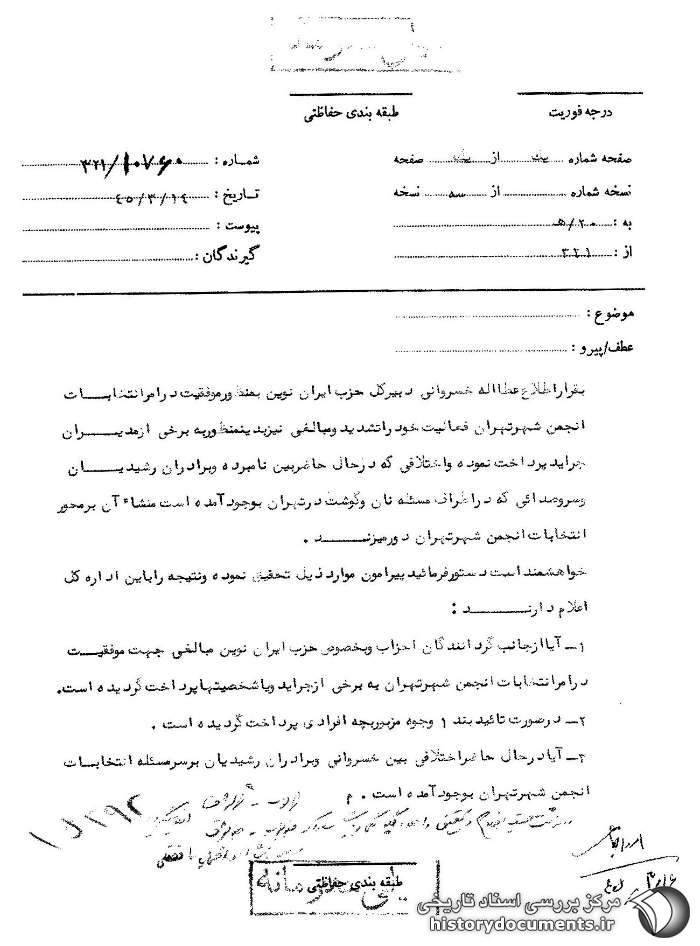 درجه فوریت
طبقه بندی حفاظتی
صفحه شماره یک از یک صفحه
شماره : ۳۲۱/۱۰۷۶۰
نسخه شماره از سه نسخه
تاریخ : ۴۵/۳/۱۴
به : ۲۰/ه‍
پیوست :
از : ۳۲۱
گیرندگان :
موضوع :
عطف/پیرو :
بقرار اطلاع عطااله خسروانی دبیرکل حزب ایران نوین بمنظور موفقیت در امر انتخابات
انجمن شهر تهران فعالیت خود را تشدید و مبالغی نیز بدینمنظور به برخی از مدیران
جراید پرداخت نموده و اختلافی که در حال حاضر بین نامبرده و برادران رشیدیان
و سر و صدائی که در اطراف مسئله نان و گوشت در تهران بوجود آمده است منشاء آن بر محور
انتخابات انجمن شهر تهران دور میزند .
خواهشمند است دستور فرمائید پیرامون موارد ذیل تحقیق نموده و نتیجه را باین اداره کل
اعلام دارند :
۱ـ آیا از جانب گردانندگان احزاب و بخصوص حزب ایران نوین مبالغی جهت موفقیت
در امر انتخابات انجمن شهر تهران به برخی از جراید و یا شخصیتها پرداخت گردیده است.
۲ـ در صورت تائید بند ۱ وجوه مزبور بچه افرادی پرداخت گردیده است .
۳ـ آیا در حال حاضر اختلافی بین خسروانی و برادران رشیدیان بر سر مسئله انتخابات
انجمن شهر تهران بوجود آمده است . م
طبقه بندی حفاظتی
خیلی محرمانه
مرکز بررسی اسناد تاریخی
historydocuments.ir